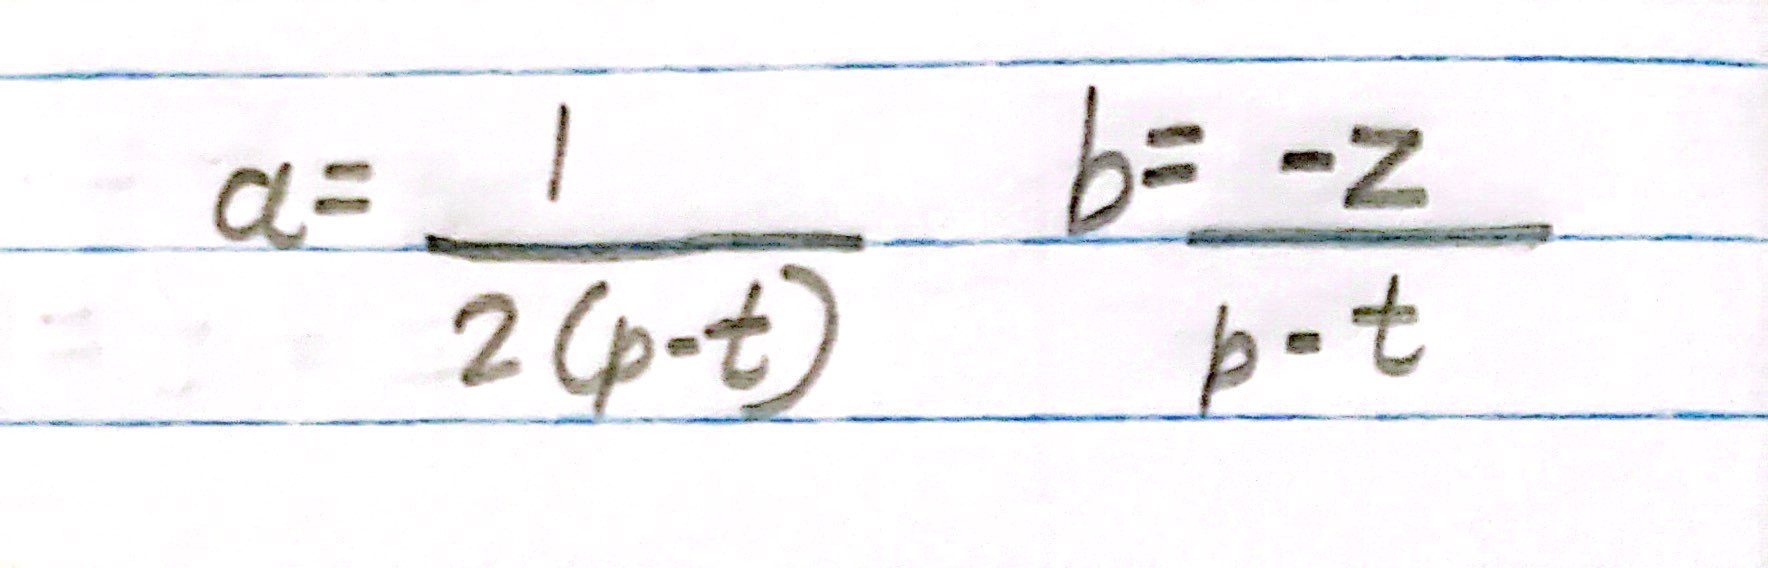 a = 1 / 2(p-t)    b = -z / p-t